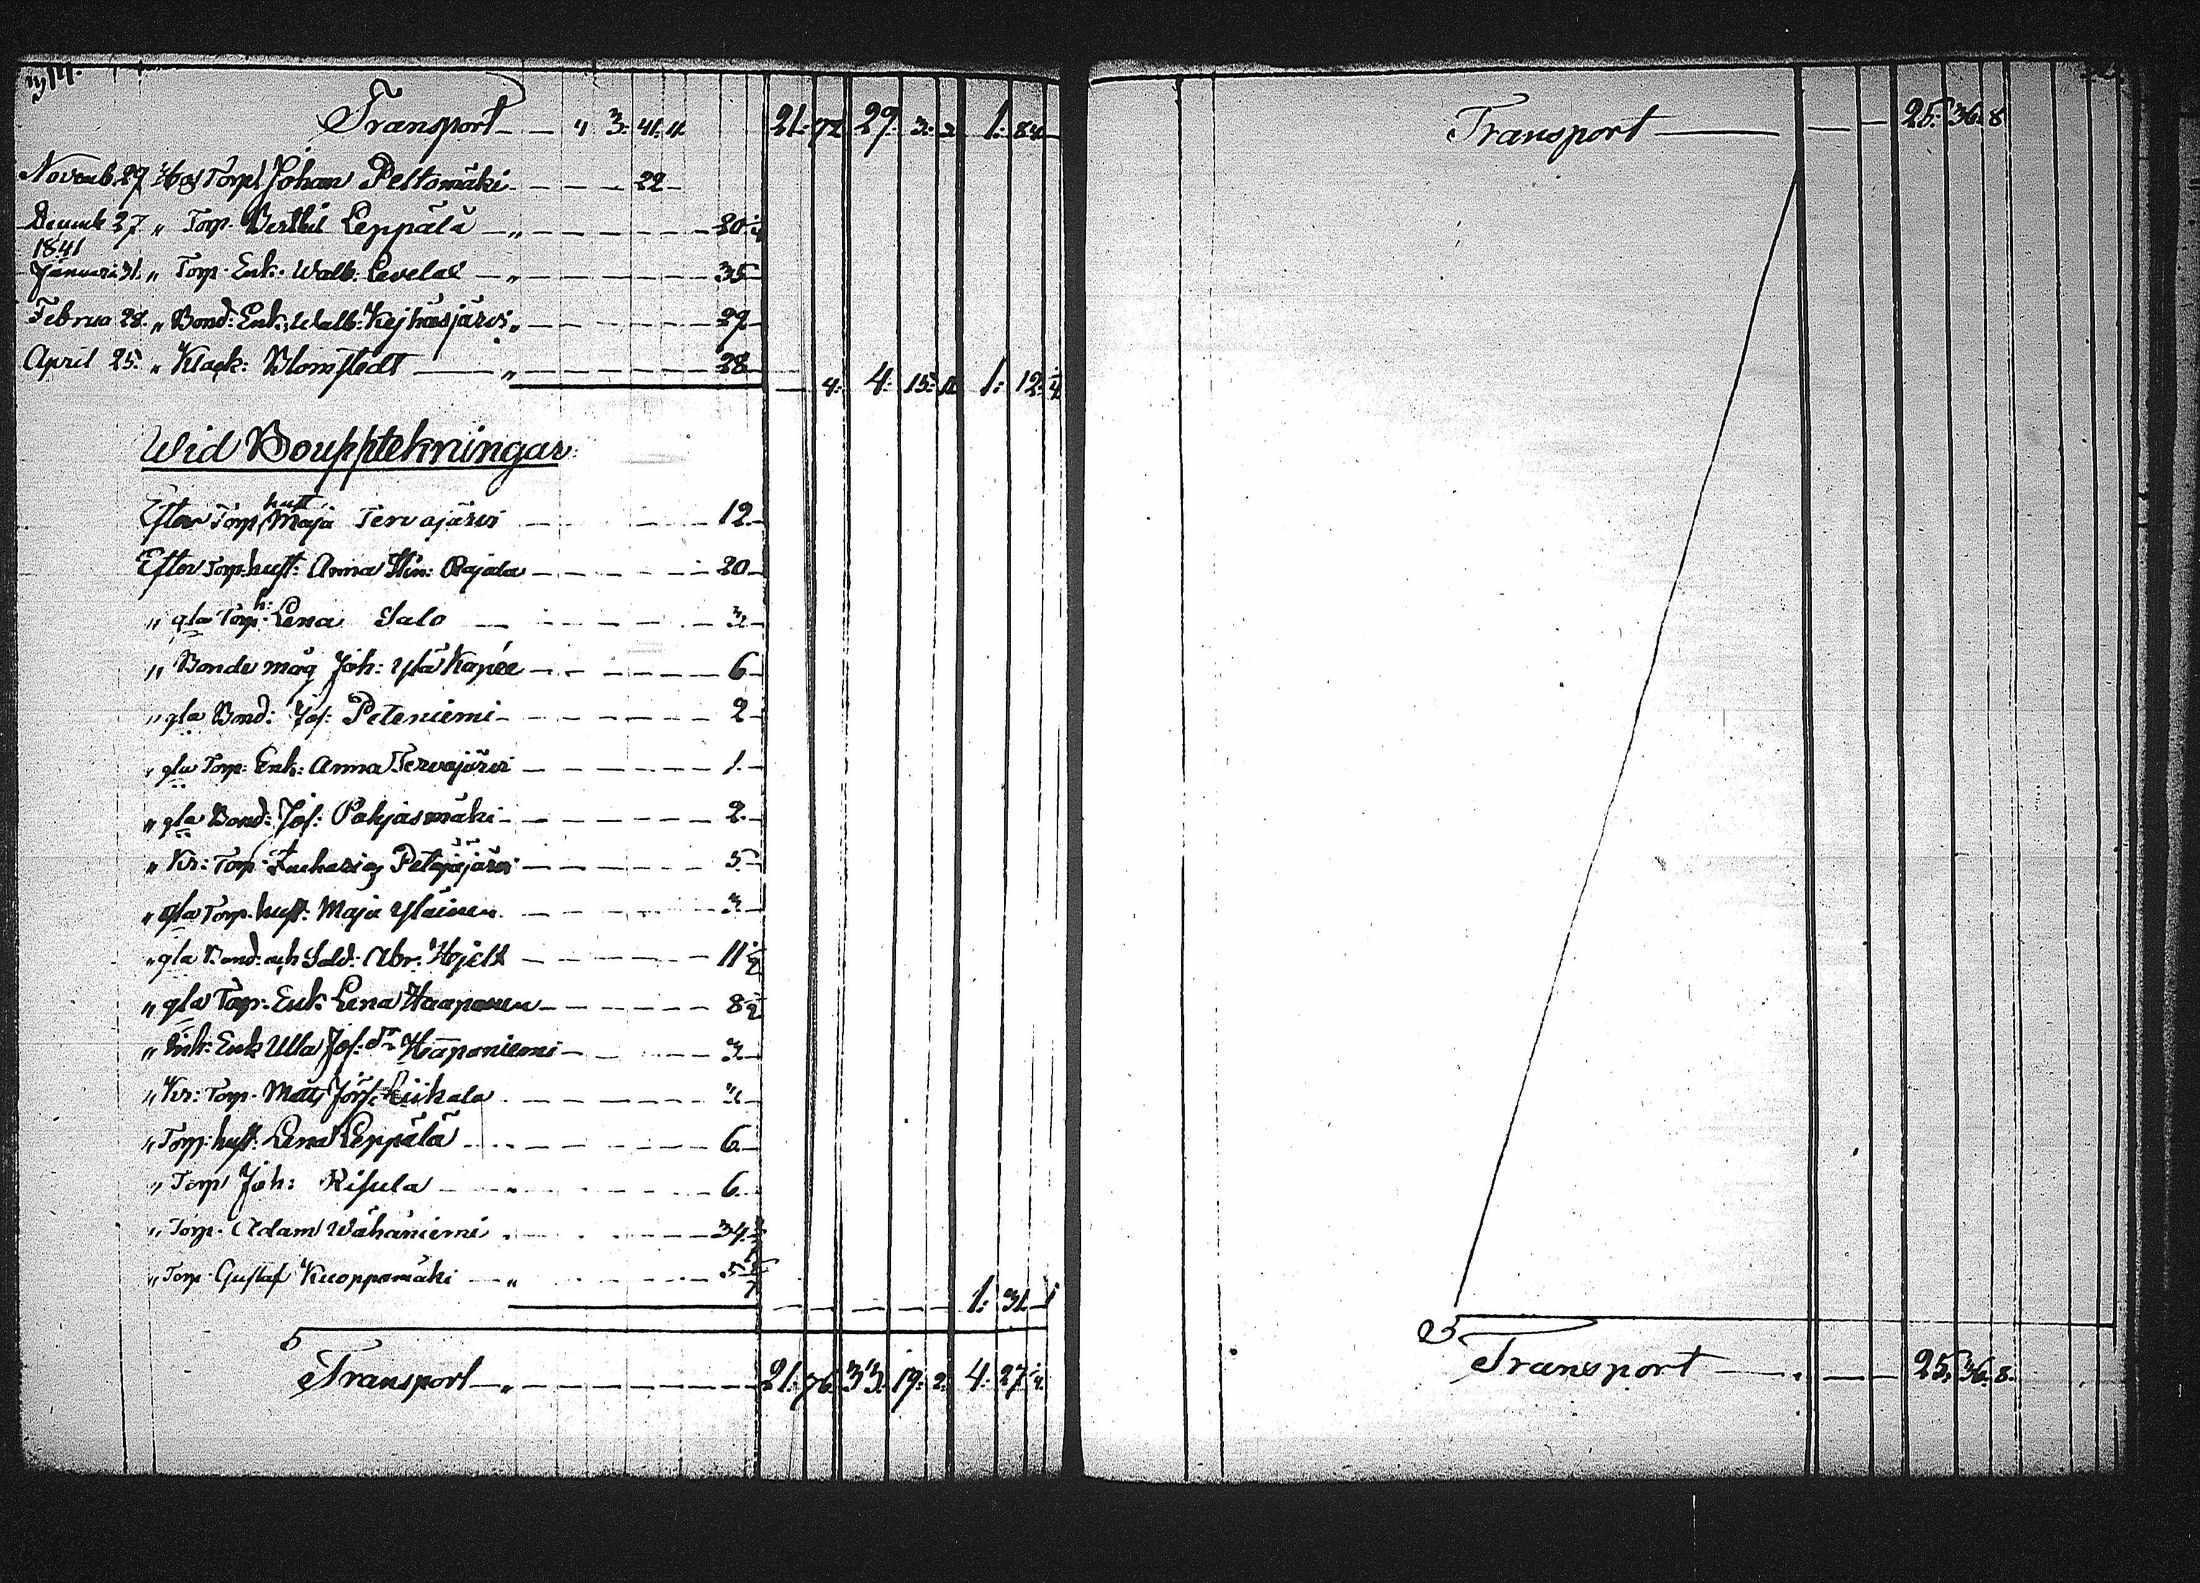 Transport — — " 3. 41. 11. 21. 72 29. 3. 2. 1. 84
Novemb. 27 Hos Torp. Johan Peltomäki — — — 22 —
Decemb 27 " Torp. Berthil Leppälä — " — — — — 20 1/4
1841
Januari 31. " Torp. Enk. Walb. Levelax — " — — — — 35
Februa 28. " Bond. Enk. Walb. Kejhäsjärvi " — — — — 29
April 25. " Klock: Blomstedt — " — — — — 28
— 4. 4. 15. 1. 12. 1/4
Wid Boupptekningar:
Efter Torp. hust Maja Tervajärvi — — — 12
Efter Torp. hust: Anna Stin: Rajala — — — 20
" gla Torp. h: Lena Salo — — — 3
" Bonde måg Joh: Ylä Kopée — — — 6
" gla Bond: Jos: Peteniemi — — — 2
" gla Torp: Enk: Anna Tervajärvi — — — 1.
" gla Bond: Jos: Pohjasmäki — — — 2.
" Kr: Torp. Zacharias Petäjäjärvi — — — 5
" gla Torp. hust: Maja Yläinen — — — 3
" gla Bond. och Sold: Abr. Hjelt — — — 11 1/2
" gla Torp. Enk. Lena Haaponen — — — 8 1/2
" Inh: Enk Ulla Jos: dr Haponiemi — — — 3
" Kr: Torp. Matts Liikala — — — "
" Torp. hust. Lena Leppälä — — — 6
" Torp Joh: Risula — — — 6
" Torp. Adam Wähäniemi — — — 34
" Torp. Gustaf Kuoppamäki — " — — 5
— — — — 1: 31
Transport — " — — — 21. 76. 33. 19. 2. 4. 27 1/4
Transport — — — 25. 36. 8
Transport — — — 25. 36. 8.